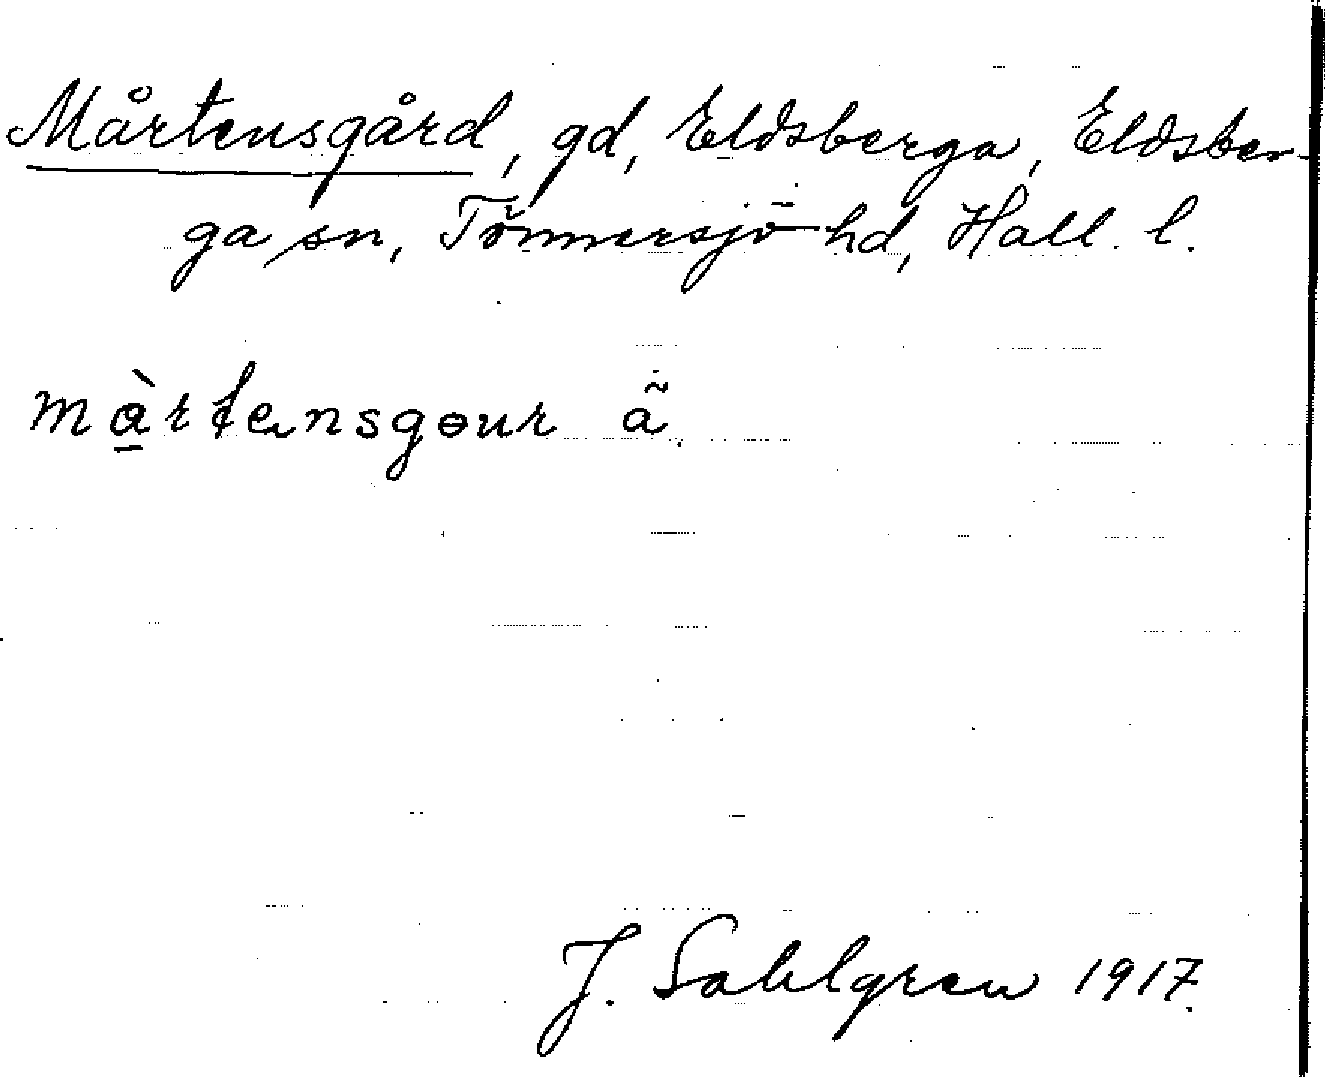 Mårtensgård, gd, Eldsberga, Eldsber-
ga sn, Tönnersjö hd, Hall. l.
màrtensgɵur ã.
J. Sahlgren 1917.